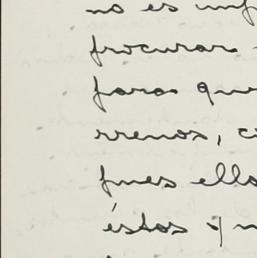 no es imp
procurar
para que
rrenos, c
pues ello
éstos y n